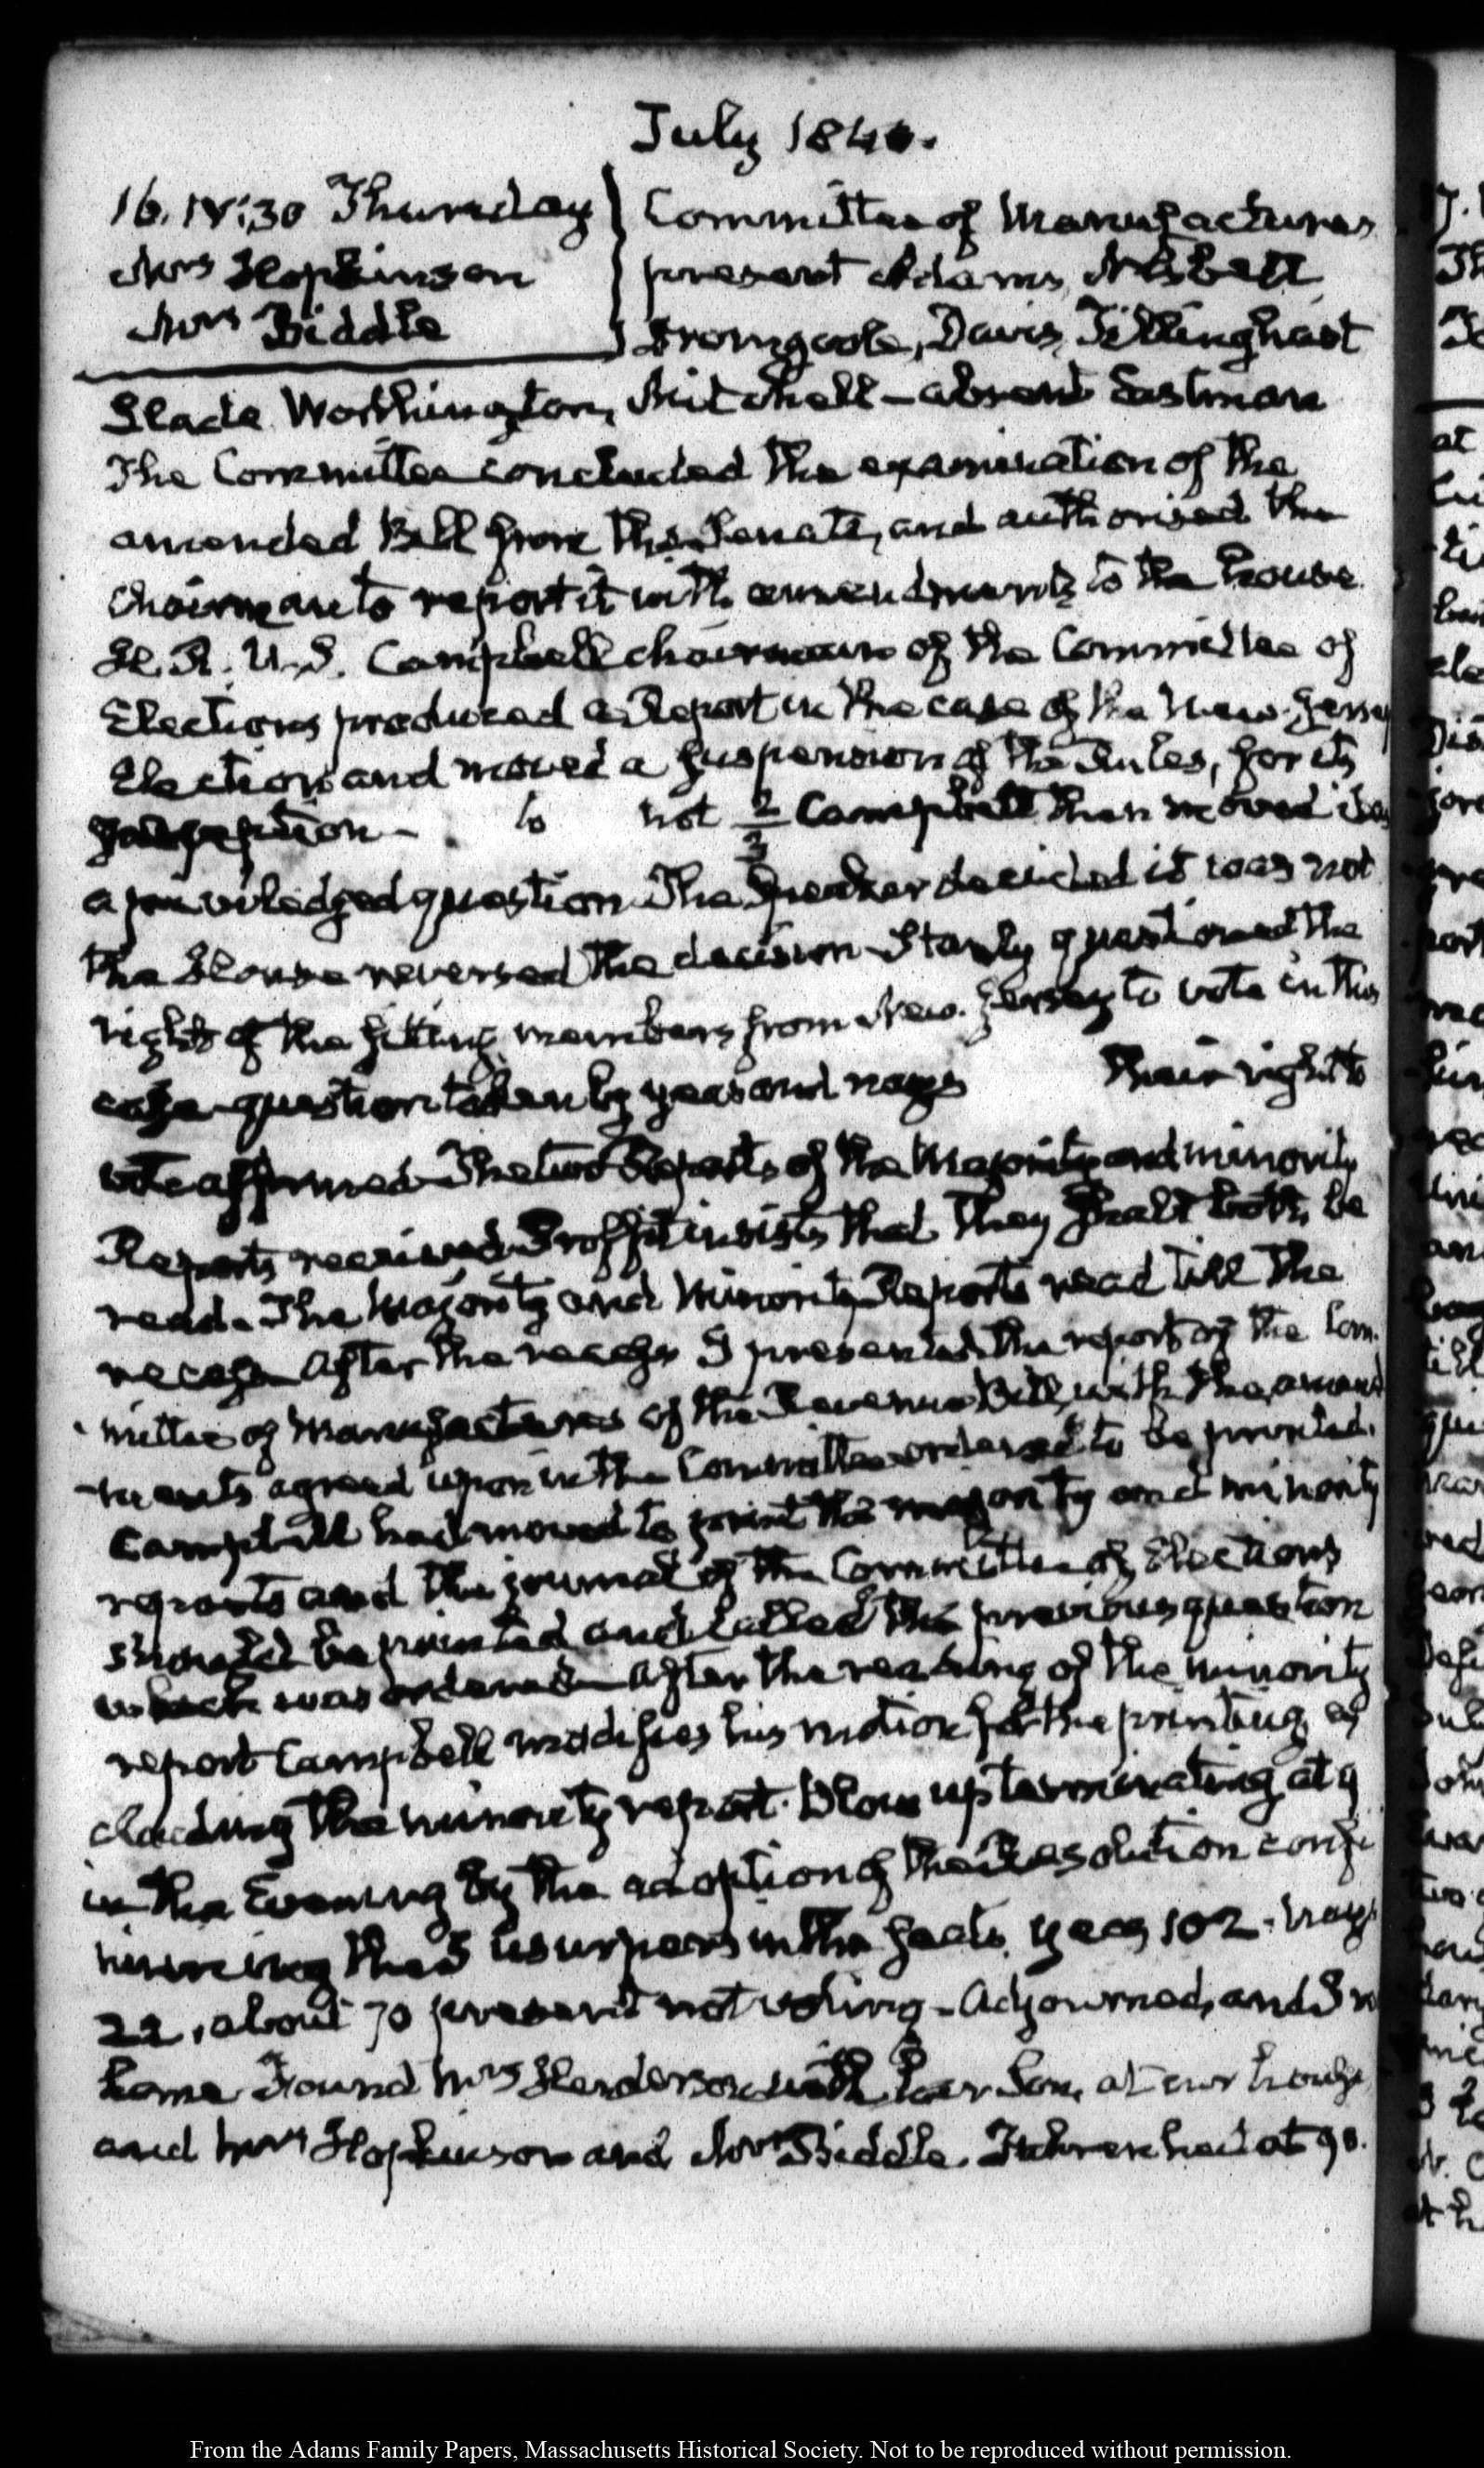 July 1840.
16. IV:30 Thursday
Mrs Hopkinson
Mrs Biddle
Committee of Manufactures
present Adams, Nisbett
Dromgoole, Davis, Tillinghast
Slade Worthington, Mitchell – absent Eastman
The Committee concluded the examination of the
amended Bill from the Senate, and authorised the
Chairman to report it with amendments to the house
H. R. U.S. Campbell chairman of the Committee of
Elections produced a Report in the case of the New-Jersey
Election and moved a suspension of the Rules, for its
– to not 2/3 Campbell then moved it as
a priviledged question The Speaker decided it was not
the House reversed the decision Stanly questioned the
right of the sitting members from New-Jersey to vote in this
case question taken by yeas and nays their right to
vote affirmed The two Reports of the Majority and minority
Reports received Proffit insists that they shall both be
read. The Majority and Minority Reports read till the
recess After the recess I presented the report of the Com-
mittee of Manufactures of the Revenue Bill, with the amend
-ments agreed upon in the Committee ordered to be printed.
Campbell had moved to print the majority and minority
reports and the journal of the Committee of Elections
should be printed and called the previous question
which was ordered – After the reading of the minority
report Campbell modifies his motion for the printing ex
cluding the minority report. Blow up terminating at 9
in the Evening by the adoption of the Resolution confi
rming the 5 usurpers in the seats. yeas 102. nays
22. about 70 present not voting – Adjourned, and I
home Found Mrs Henderson with her Son, at our house
and Mrs Hopkinson and Mrs Biddle. at 90.